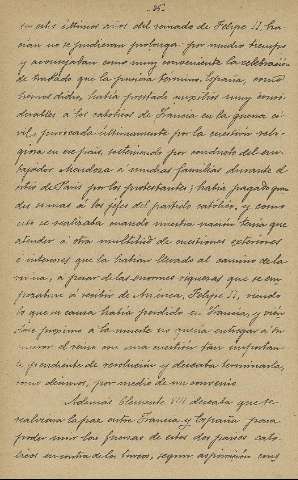 en estos últimos años del reinado de Felipe II, ha
cían no se pudieran prolongar por mucho tiempo
y aconsejaban como muy conveniente la celebración
de tratado que la pusiera termino. España, como
hemos dicho, había prestado auxilios muy consi-
derables a los catolicos de Francia en la guerra ci-
vil, provocada últimamente por la cuestión reli-
giosa en ese pais, sosteniendo por conducto del em-
bajador Mendoza a muchas familias durante el
sitio de Paris por los protestantes; había pagado gran
des sumas á los jefes del partido catolico, y como
esto se realizaba cuando nuestra nación tenía que
atender a otra multitud de cuestiones exteriores
e interiores que la habían llevado al camino de la
ruina, a pesar de las enormes riquezas que se em-
pezaban á recibir de América, Felipe II, viendo
lo que su causa había perdido en Francia, y vien
dose proximo a la muerte no quería entregar á su
sucesor el reino con una cuestión tan importan-
te pendiente de resolución y deseaba terminarla,
como decimos, por medio de un convenio
Además Clemente VIII deseaba que se
realizara la paz entre Francia y España para
poder unir las fuerzas de estos dos paises cato-
licos en contra de los turcos, según aspiración cons